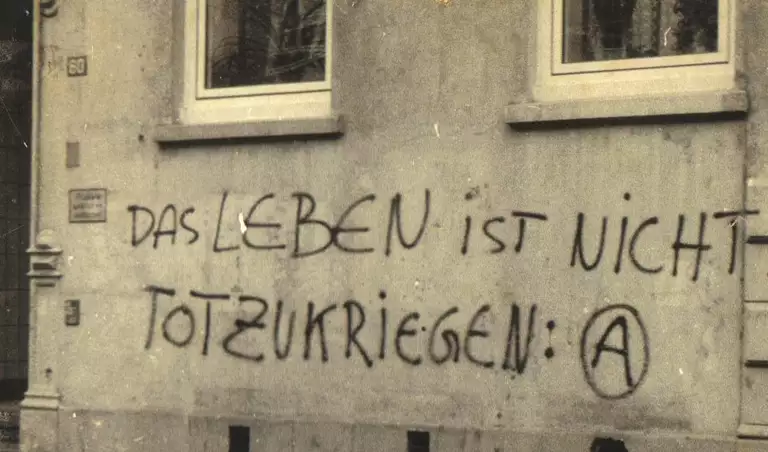 60
DAS LEBEN iST NiCHT
TOTZUKRiEGEN: Ⓐ